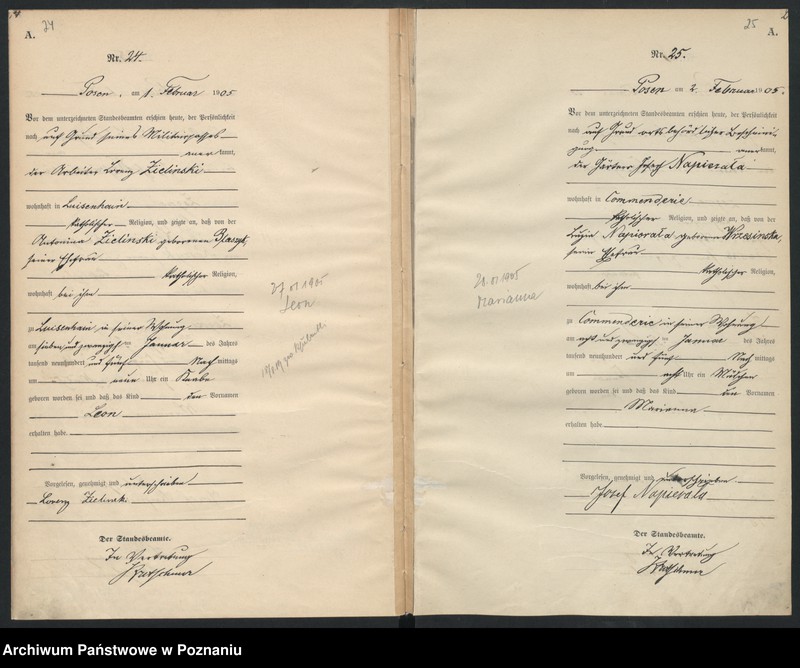 24
A.
Nr. 24.
Posen, am 1. Februar 1905
Vor dem unterzeichneten Standesbeamten erschien heute, der Persönlichkeit
nach auf Grund seines Militairpasses
anerkannt,
der Arbeiter Lorenz Zielinski
wohnhaft in Luisenhain
katholischer Religion, und zeigte an, daß von der
Antonina Zielinski geborenen Blaszyk,
seiner Ehefrau
katholischer Religion,
wohnhaft bei ihm
zu Luisenhain in seiner Wohnung
am sieben und zwanzigsten Januar des Jahres
tausend neunhundert und fünf Nachmittags
um neun Uhr ein Knabe
geboren worden sei und daß das Kind den Vornamen
Leon
erhalten habe.
Vorgelesen, genehmigt und unterschrieben
Lorenz Zielinski
Der Standesbeamte.
In Vertretung
27 01 1905
Leon
25
A.
Nr. 25.
Posen am 2. Februar 1905.
Vor dem unterzeichneten Standesbeamten erschien heute, der Persönlichkeit
nach auf Grund ortsbehördlicher Bescheini-
gung anerkannt,
der Gärtner Josef Napierała
wohnhaft in Commenderie
katholischer Religion, und zeigte an, daß von der
Napierała geborenen Wrzesinska,
seiner Ehefrau
katholischer Religion,
wohnhaft bei ihm
zu Commenderie in seiner Wohnung
am acht und zwanzigsten Januar des Jahres
tausend neunhundert und fünf Nachmittags
um acht Uhr ein Mädchen
geboren worden sei und daß das Kind den Vornamen
Marianna
erhalten habe
Vorgelesen, genehmigt und unterschrieben
Josef Napierała
Der Standesbeamte.
In Vertretung
28.01 1905
Marianna
Archiwum Państwowe w Poznaniu